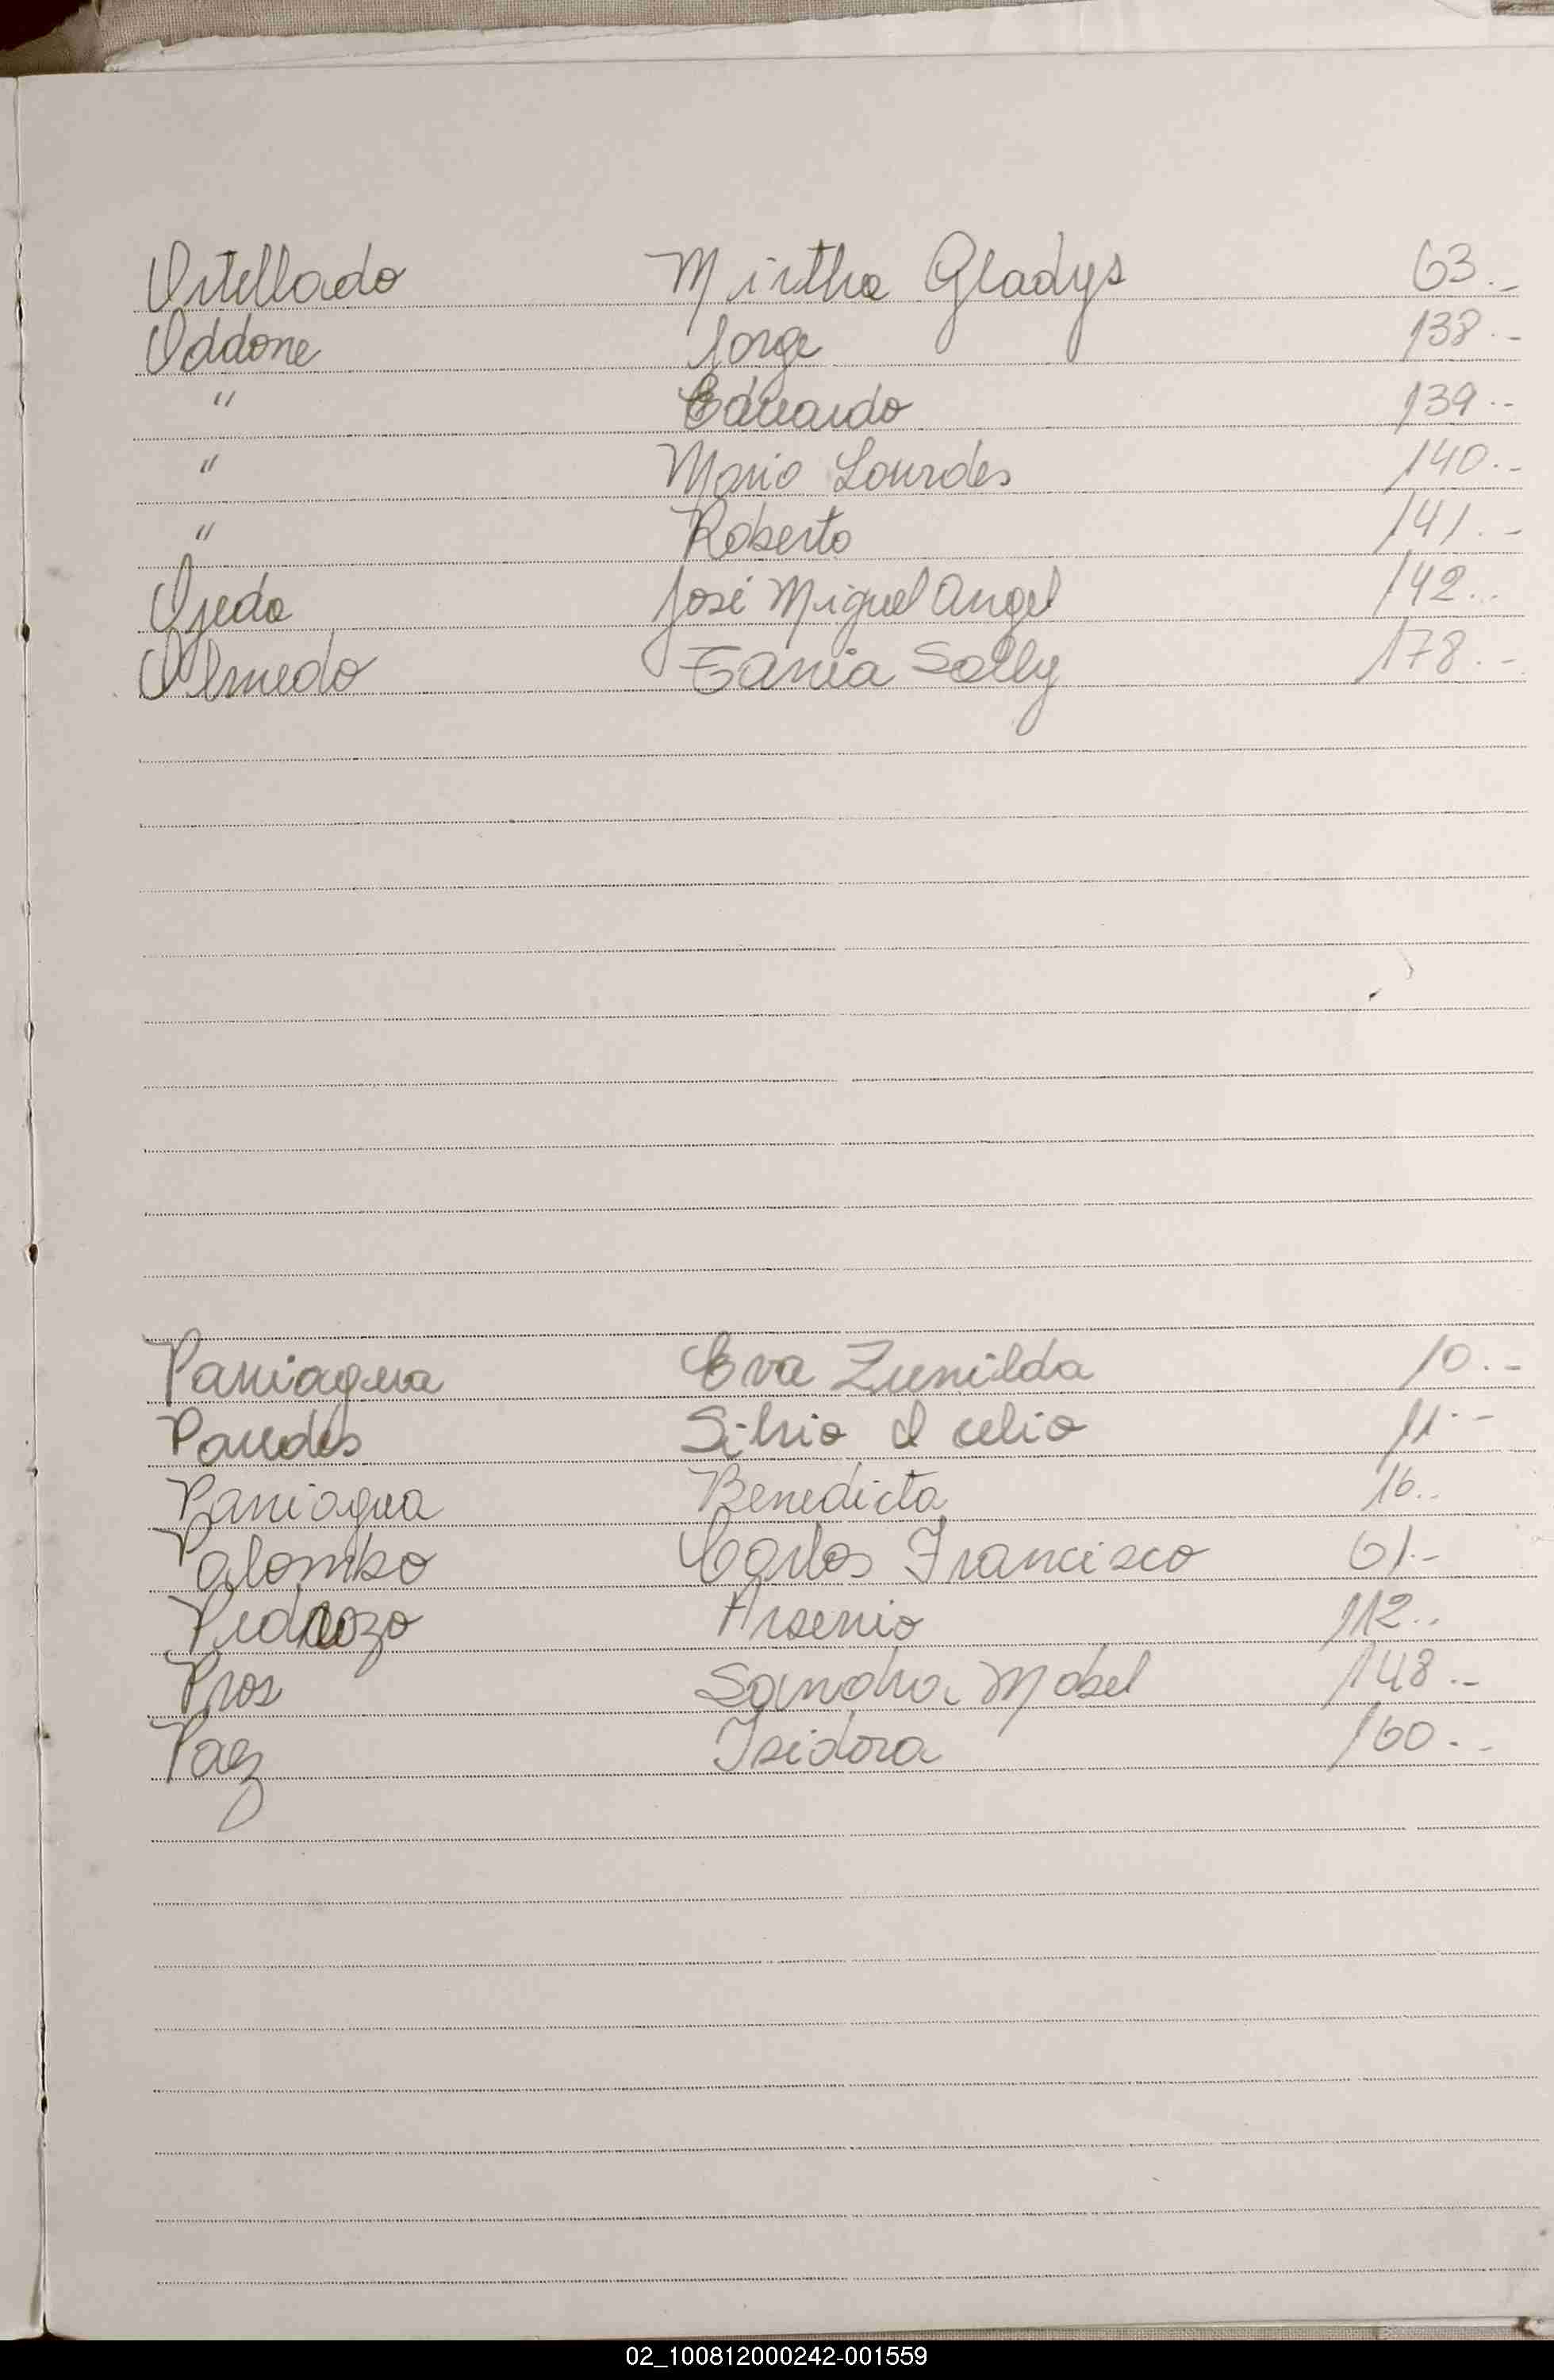 Ortellado Mirtha Gladys 63.-
Oddone Jorge 138.-
" Eduardo 139.-
" Maria Lourdes 140.-
" Roberto 141.-
Ojeda José Miguel Angel 142..
Olmedo Tania Solly 178.-
Paniagua Eva Zunilda 10.-
Paredes Silvio 11.-
Paniagua Benedicta 16..
Palombo Carlos Francisco 61.-
Pedrozo Arsenio 112..
Pros Sandra Mabel 148.-
Paez Isidora 160.-
02_100812000242-001559